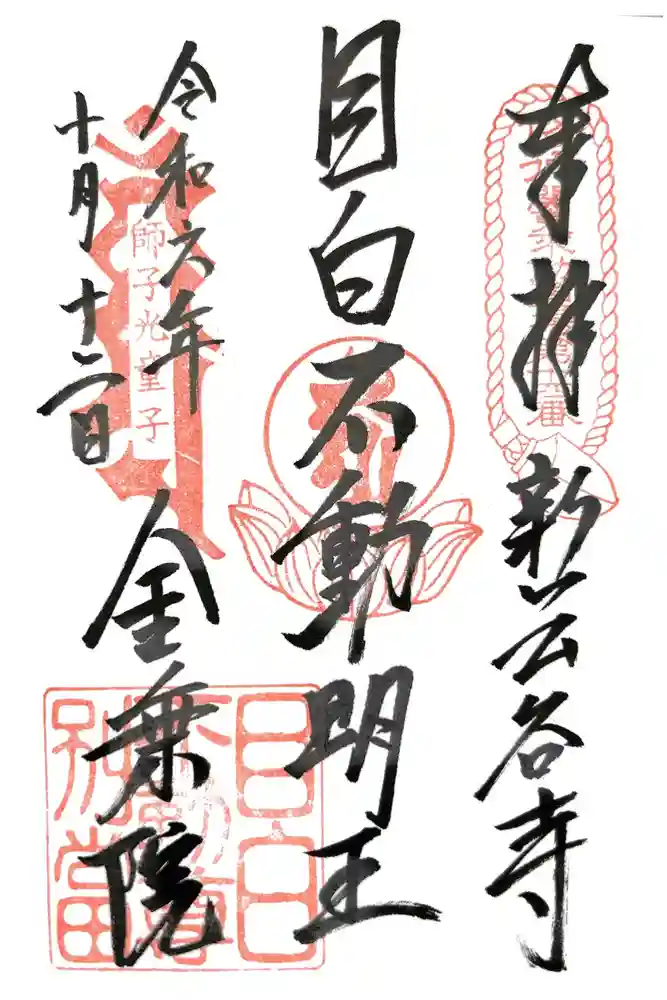 奉拝 新長谷寺
目白不動明王
令和六年
十月十二日
金乗院
師子光童子
目白
不動尊
別當